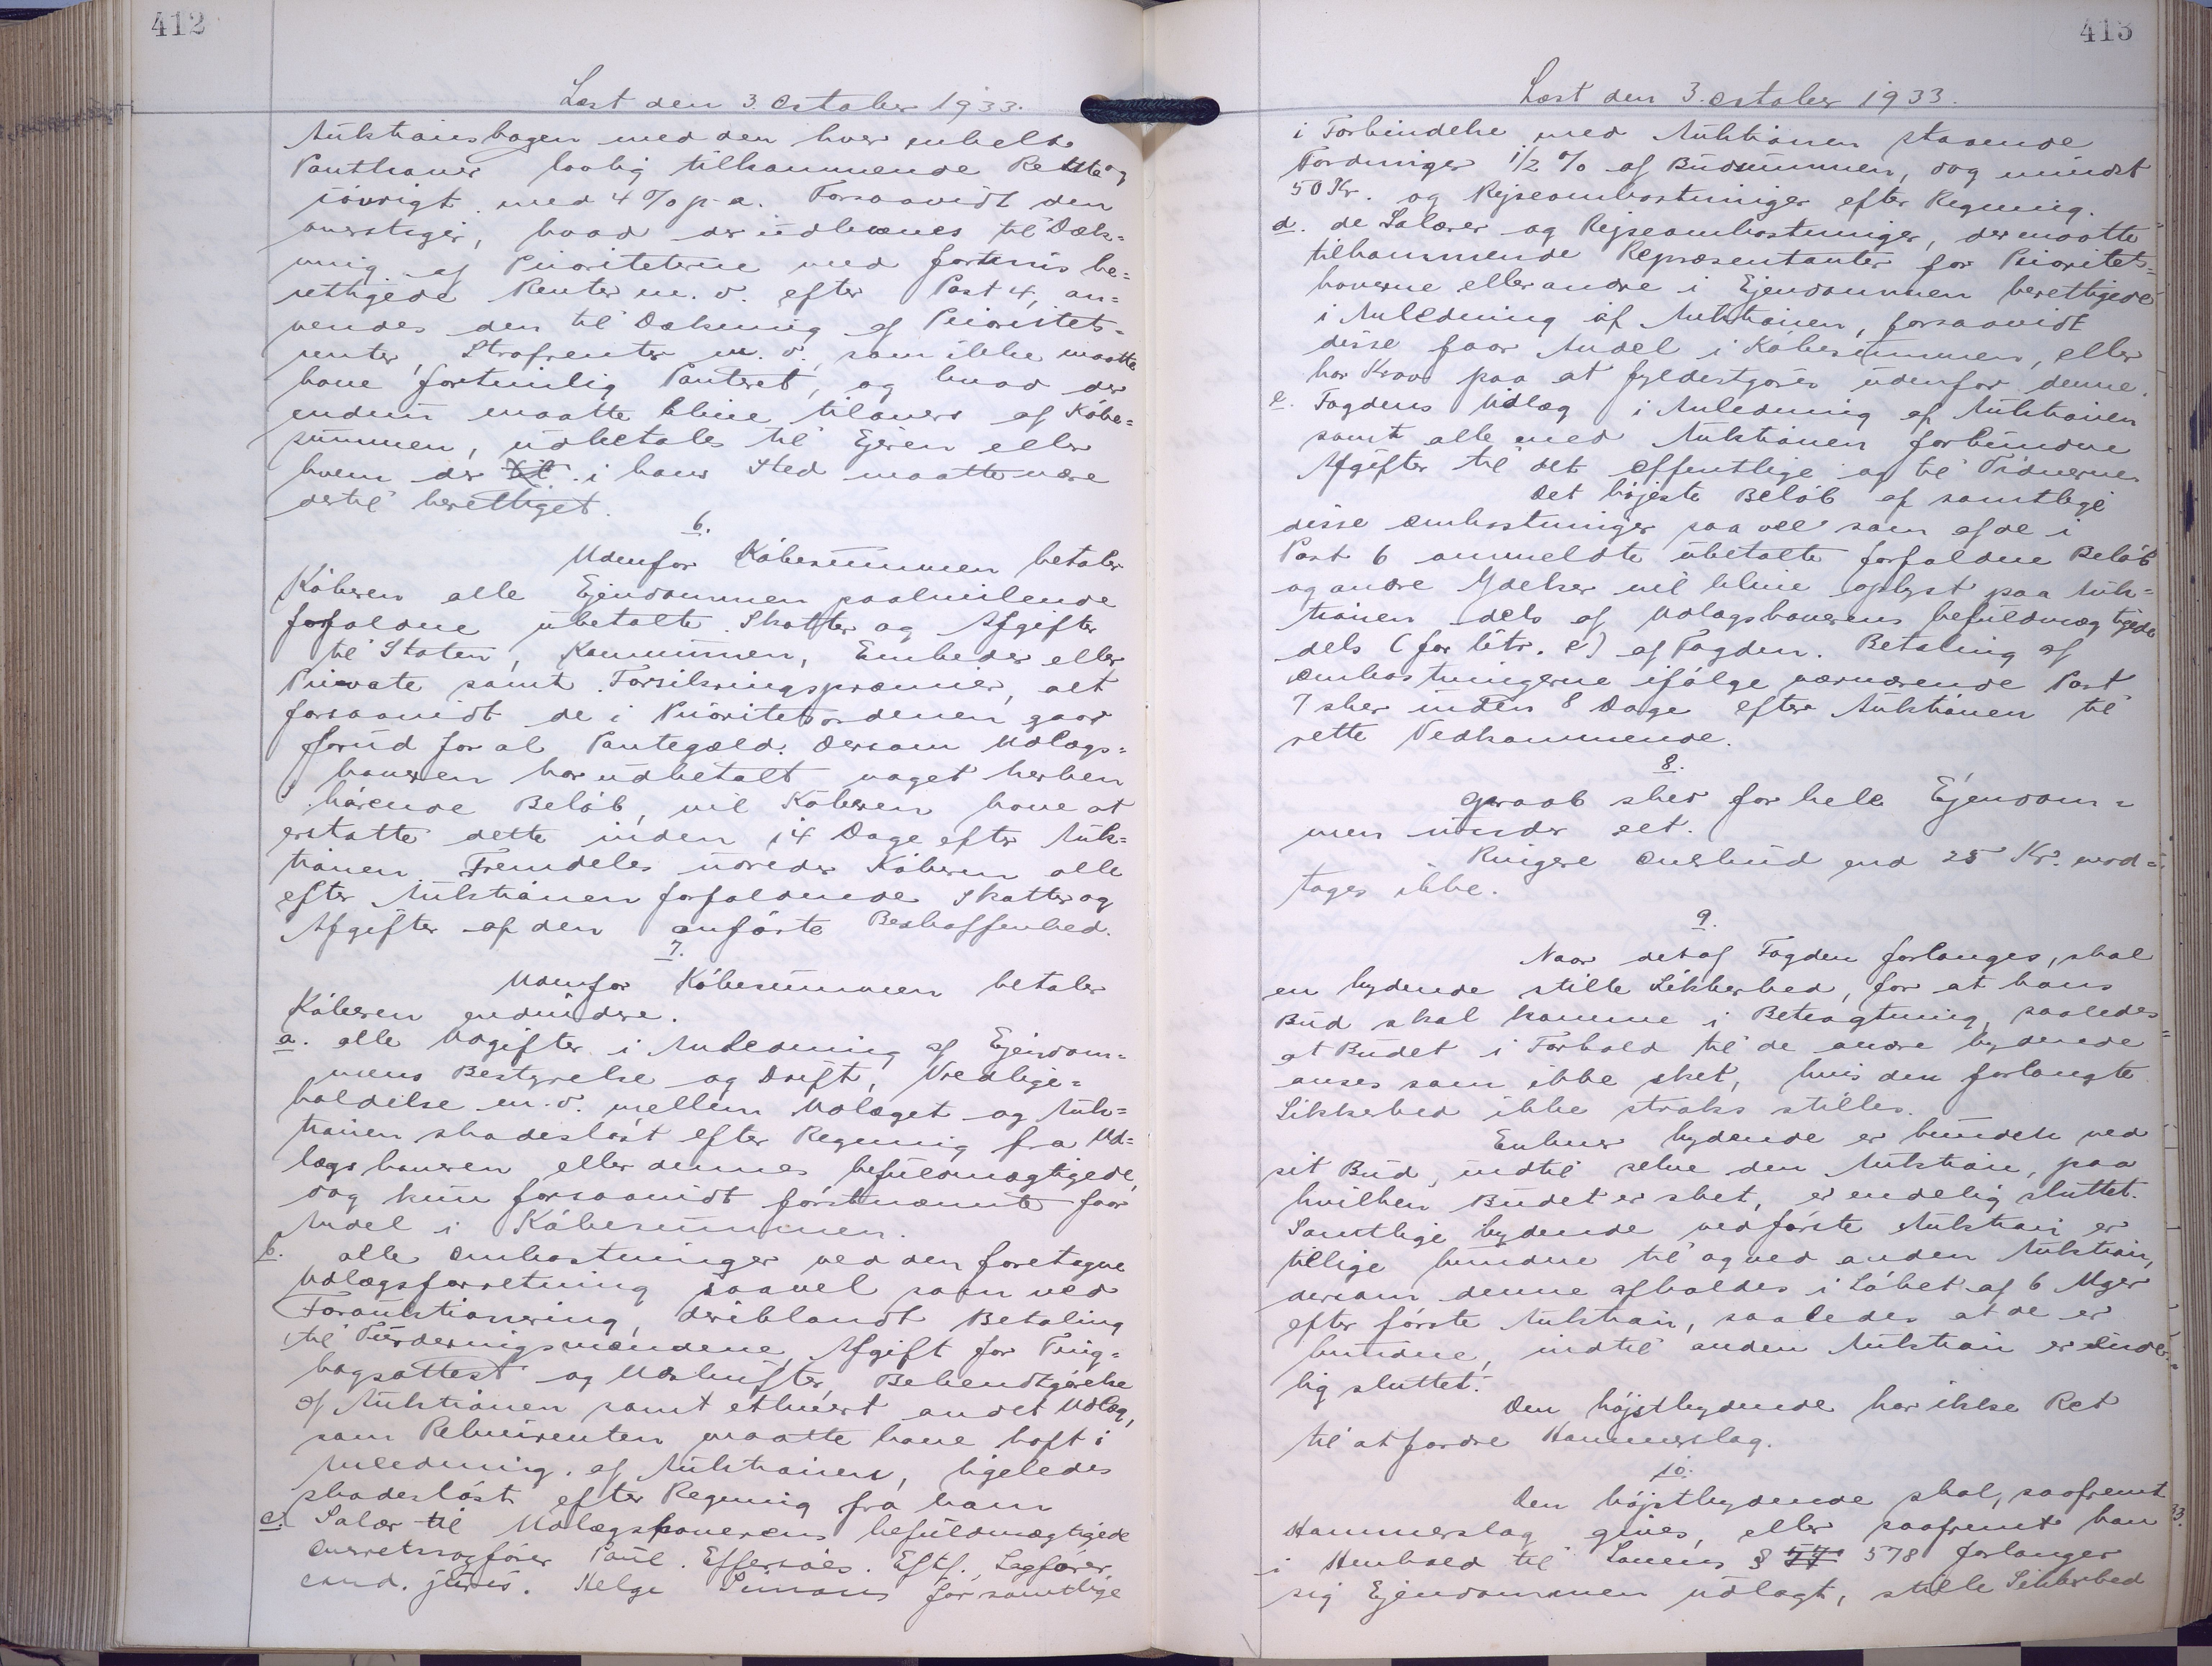 412
Læst den 3. October 1933.
Auktionsbogen med den hver enkelt
Panthaver lovlig tilkommende Rente og
iøvrigt med 4 % p.a. Forsaavidt den
overstiger, hvad der udkræves til Dæk=
ning af Prioriteterne med fortrins be=
rettigede Renter m.v. efter Post 4, an=
vendes den til Dækning af Prioritets=
renter, Strafrenter m.v. som ikke maatte
have fortrinlig Panteret, og hvad der
endnu maatte blive tilovers af Købe=
summen, udbetales til Ejeren eller
hvem der til i hans Sted maatte være
dertil berettiget.
6.
Udenfor Købesummen betaler
Køberen alle Ejendommen paahvilende
forfaldne ubetalte Skatter og Afgifter
til Staten, Kommunen, Embeder eller
Private samt Forsikringspræmier, alt
forsaavidt de i Prioritetsordenen gaar
forud for al Pantegæld. Dersom Udlægs=
haveren har udbetalt noget herhen
hørende Beløb, vil Køberen have at
erstatte dette inden 14 Dage efter Auk=
tionen. Fremdeles udreder Køberen alle
efter Auktionen forfaldende Skatter og
Afgifter af den anførte Beskaffenhed.
7.
Udenfor Købesummen betaler
Køberen endvidere.
a. alle Udgifter i Anledning af Ejendom=
mens Bestyrelse og Drift, Vedlige=
holdelse m.v. mellem Udlæget og Auk=
tionen skadesløst efter Regning fra Ud=
lægshaveren eller dennes befuldmægtigede,
dog kun forsaavidt førstnævnte faar
Andel i Købesummen.
b. alle Omkostninger ved den foretagne
Udlægsforretning saavel som ved
Foranktionering, deriblandt Betaling
til Vurderingsmændene, Afgift for Ting=
bogsattest og Udskrifter, Bekendtgørelse
af Auktionen samt ethvert andet Udlæg,
som Rekvirenten maatte have haft i
Anledning af Auktionen, ligeledes
skadesløst efter Regning fra ham
c. Salær til Udlægshaverens befuldmægtigede
Overretssagfører Paul Effersøes. Eftf., Sagfører
cand. juris. Helge Simons for samtlige
413
Læst den 3. October 1933.
i Forbindelse med Auktionen staaende
Forretninger 1/2 % af Budsummen, dog mindst
50 Kr. og Rejseomkostninger efter Regning.
d. de Salærer og Rejseomkostninger, der maatte
tilkommende Repræsentanter for Prioritets=
haverne eller andre i Ejendommen berettigede
i Anledning af Auktionen, forsaavidt
disse faar Andel i Købesummen, eller
har Krav paa at fyldestgøres udenfor denne.
e. Fogdens Udlæg i Anledning af Auktionen
samt alle med Auktionen forbundne
Afgifter til det offentlige og til Vidnerne.
Det højeste Beløb af samtlige
disse Omkostninger saavel som af de i
Post 6 ommeldte ubetalte forfaldne Beløb
og andre Ydelser vil blive oplyst paa Auk=
tionen dels af Udlægshaverens befuldmægtigede
dels (for litr. e) af Fogden. Betaling af
Omkostningerne ifølge nærværende Post
7 sker inden 8 Dage efter Auktionen til
rette Vedkommende.
8.
Opraab sker for hele Ejendom=
men under eet.
Ringere Overbud end 25 Kr. mod=
tages ikke.
9.
Naar det af Fogden forlanges, skal
en bydende stille Sikkerhed, for at hans
Bud skal komme i Betragtning, saaledes
at Budet i Forhold til de andre bydende
anses som ikke sket, hvis den forlangte
Sikkerhed ikke straks stilles.
Enhver bydende er bunden ved
sit Bud, indtil selve den Auktion, paa
hvilken Budet er sket, er endelig sluttet.
Samtlige bydende ved første Auktion er
tillige bundne til og ved anden Auktion,
dersom denne afholdes i Løbet af 6 Uger
efter første Auktion, saaledes at de er
bundne, indtil anden Auktion er ende=
lig sluttet.
Den højstbydende har ikke Ret
til at fordre Hammerslag.
10.
Den højstbydende skal, saafremt
Hammerslag gives, eller saafremt han
i Henhold til Lovens § 57 578 forlanger
sig Ejendommen udlagt, stille Sikkerhed